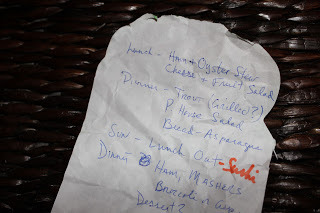 Lunch - Ham + Oyster Stew
Cheese + Fruit Salad
Dinner - Trout (Grilled?)
P. House Salad
Bread - Asparagus
Sun - Lunch Out - Sushi
Dinner Ham, Mashers
Broccoli n
Dessert?